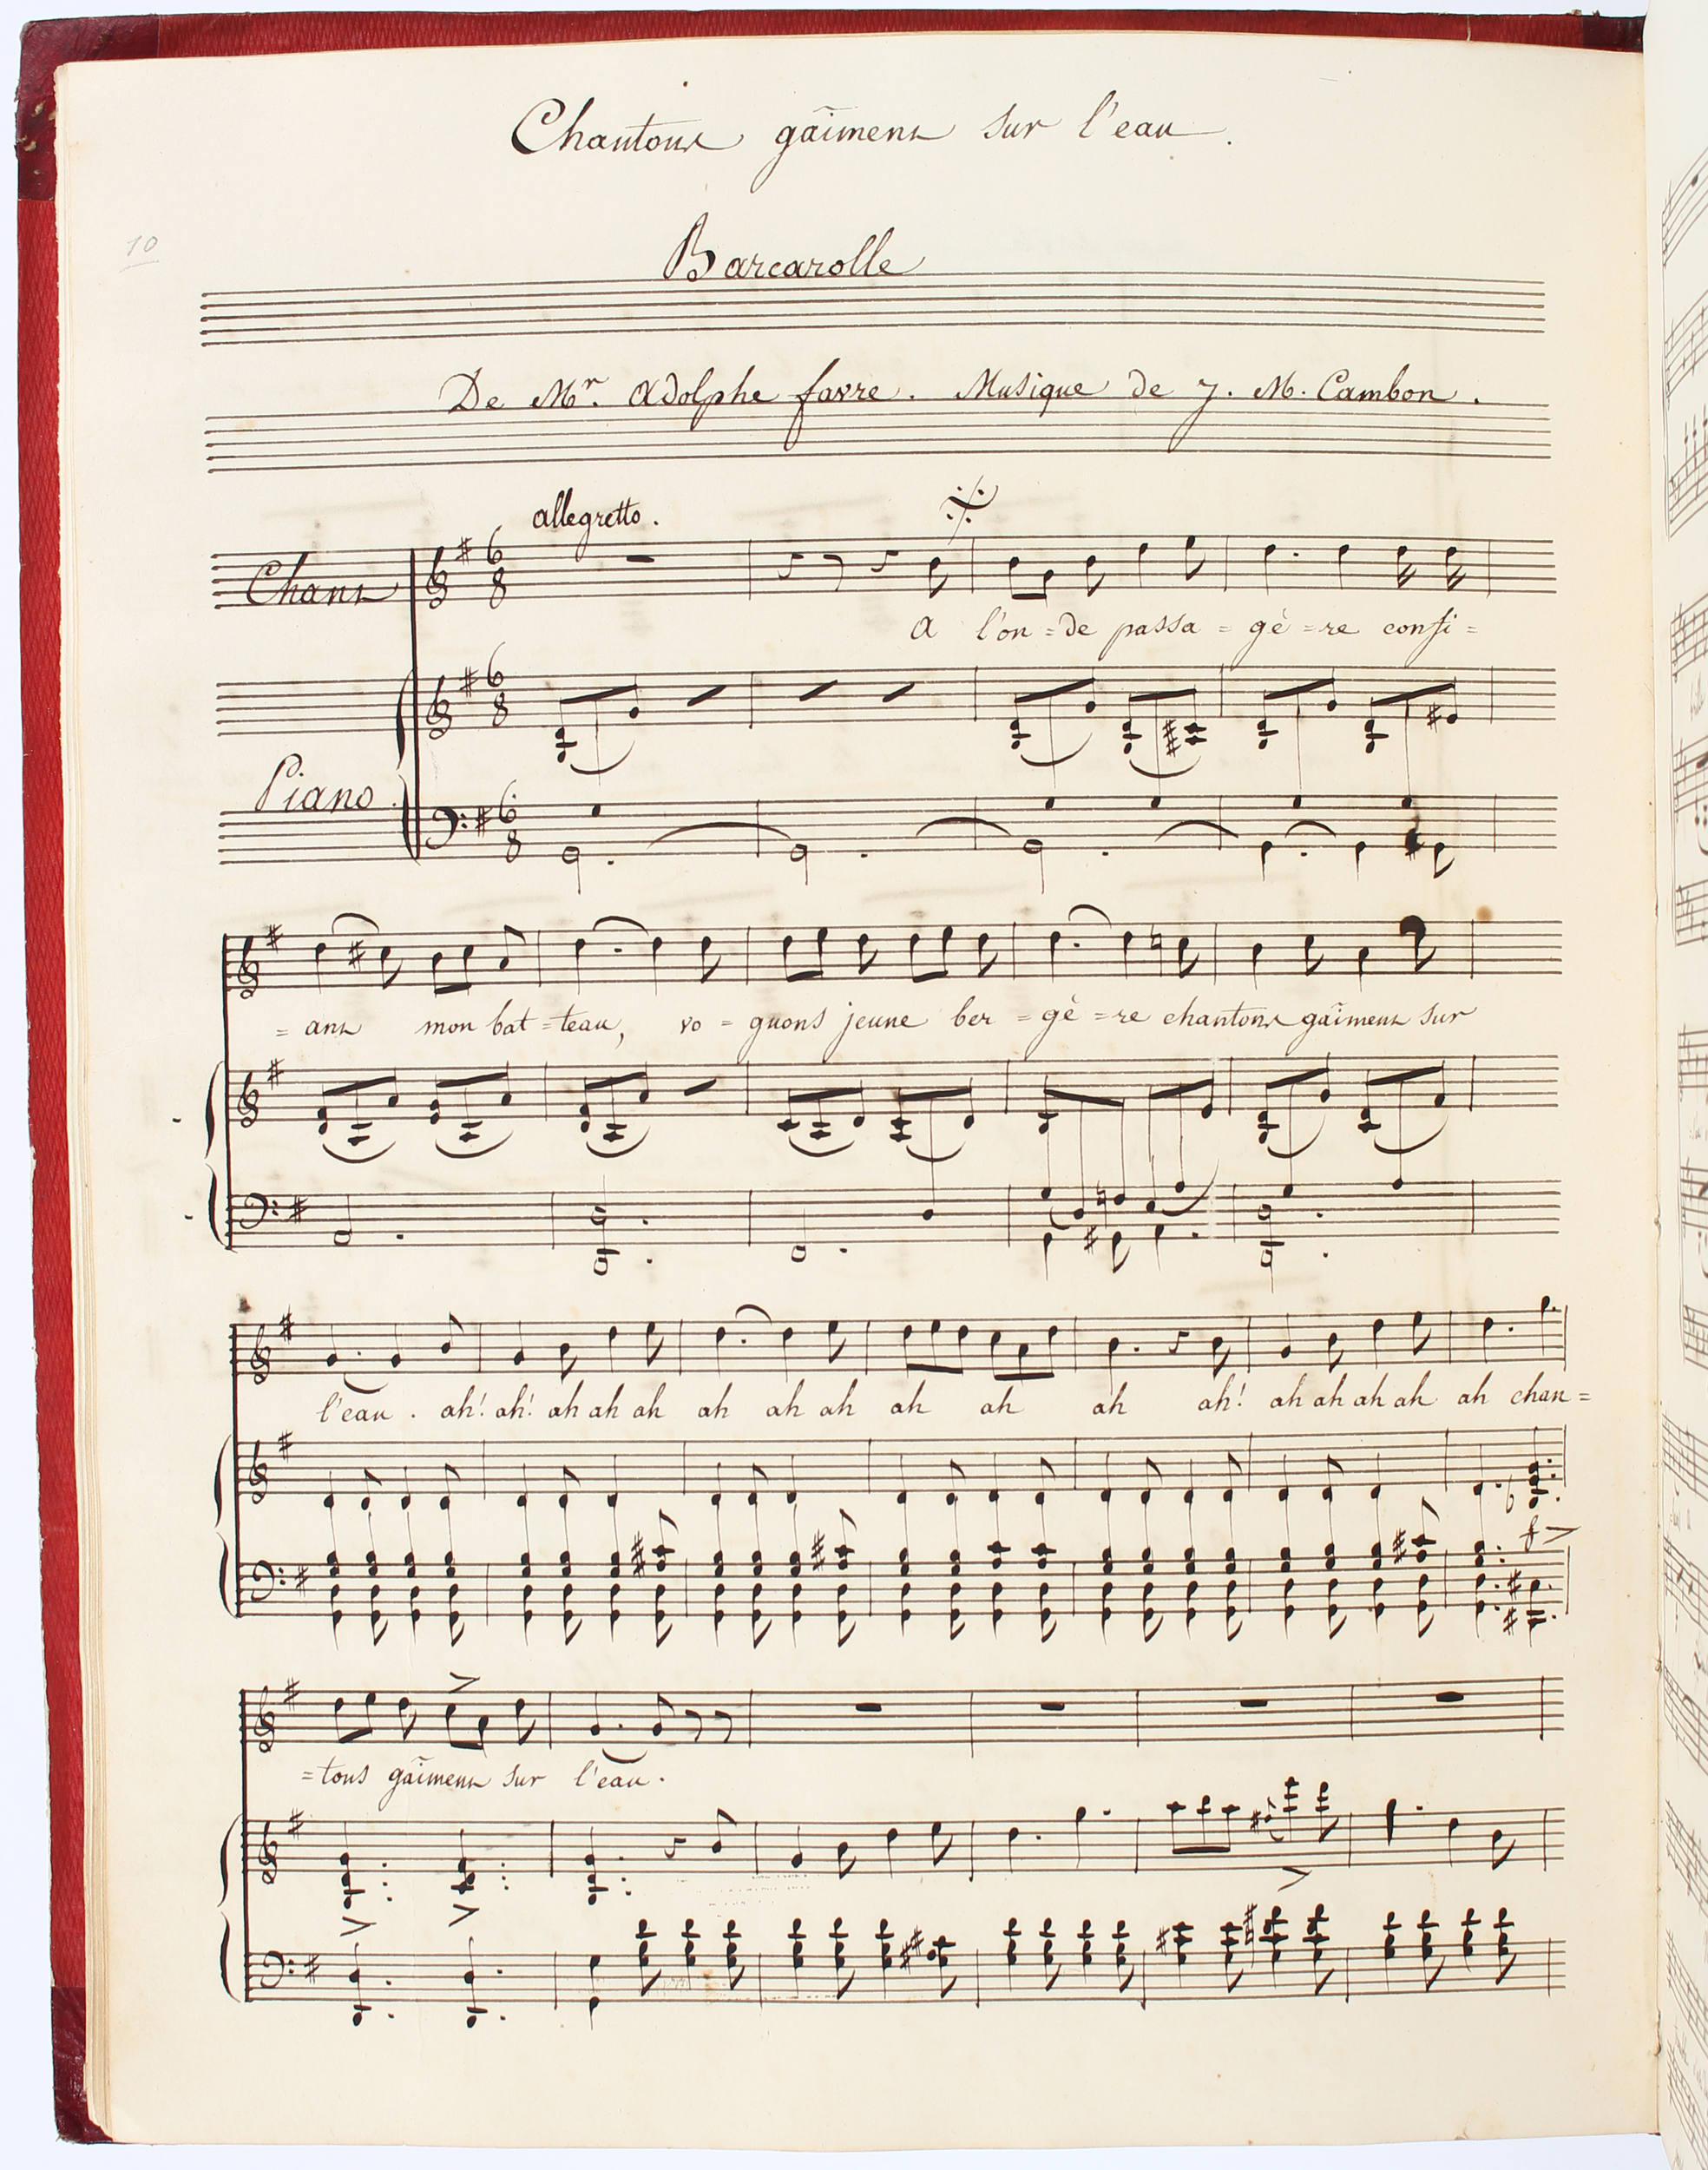 Chantons gaîment sur l'eau.
10
Barcarolle
De Mr. Adolphe favre. Musique de J. M. Cambon.
allegretto.
Chant
6
8
A l'on=de passa=gè=re confi=
6
8
Piano.
6
8
=ant mon bat=teau, vo=guons jeune ber=gè=re chantons gaîment sur
l'eau. ah! ah! ah ah ah ah ah ah ah ah ah ah! ah ah ah ah ah chan=
f >
=tons gaîment sur l'eau.